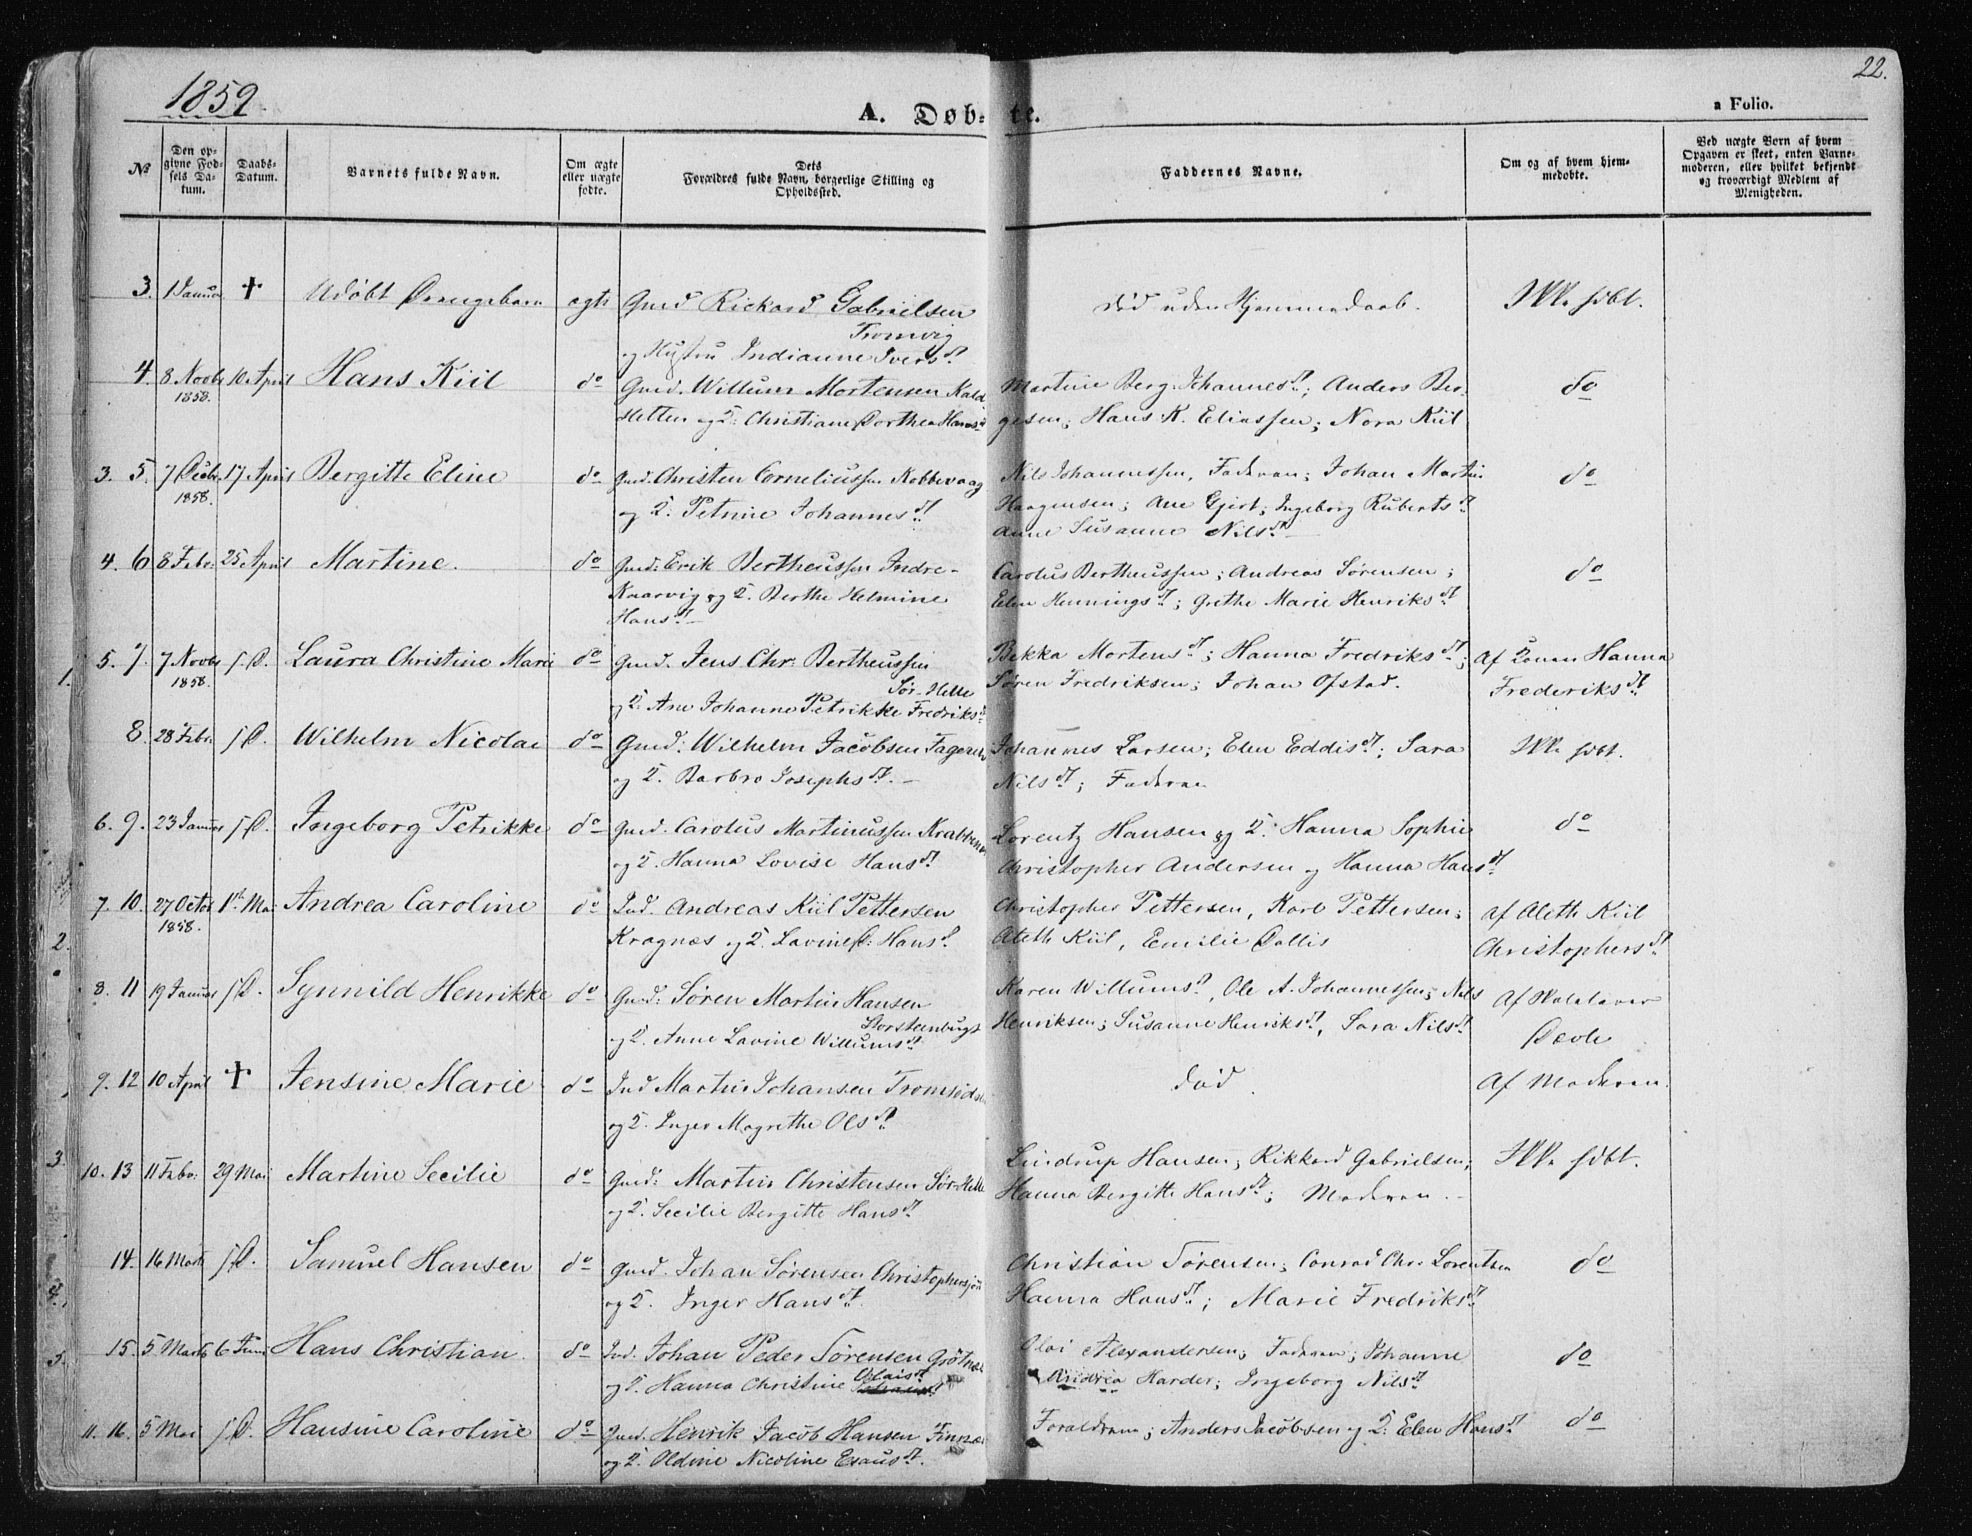 1859.
22.
A. Døb-
te.
a Folio.
№
Den op-
givne Fød-
sels Da-
tum.
Daabs-
Datum.
Barnets fulde Navn.
Om ægte
eller uægte
født.
Dets
Forældres fulde Navn, borgerlige Stilling og
Opholdssted.
Faddernes Navne.
Om og af hvem hjem-
medøbt.
Ved uægte Børn af hvem
Opgaven er skeet, enten Barne-
moderen, eller hvilket bekjendt
og troværdigt Medlem af
Menigheden.
3. 1 Januar † Udøbt Drengebarn ægte Gmd Rickard Gabrielsen
Tromvig
og Hustru Indianne Ivers dt
død uden Hjemmedaab.
Ikke hdbt.
4. 8 Novbr 10 April Hans Kiil do Gmd. Willum Mortensen Kald-
1858.
sletten og H: Christiane Dorthea Hans dt
Martine Berg Johannes dt; Anders Bør-
gesen; Hans K. Eliassen; Nora Kiil
do
3. 5. 7 Decbr 17 April Bergitte Eline do Gmd. Christen Corneliussen Kobbevaag
1858.
og H. Petrine Johannes dt
Nils Johannessen, Faderen; Johan Martin
Haagensen; Ane Gjert; Ingeborg Ruberts dt
Anne Susanne Nils dt
do
4. 6 8 Febr. 25 April Martine. do Gmd: Erik Bertheussen Indre-
Kaarvig og H. Berthe Helmine
Hans dt
Carolus Bertheussen; Andreas Sørensen;
Elen Hennings dt; Grethe Marie Henriks dt
do
1.
5. 7. 7 Novbr j. D. Laura Christine Marie do Gmd. Jens Chr. Bertheussen
1858.
Sør-Helle
og H. Ane Johanne Petrikke Fredriks dt
Bekka Mortens dt; Hanna Fredriks dt;
Søren Fredriksen; Johan Ofstad.
Af Konen Hanna
Frederiks dt
8. 28 Febr. j. D. Wilhelm Nicolai do Gmd: Wilhelm Jacobsen
og H. Barbro Josephs dt. –
Johannes Larsen; Elen Eddis dt; Sara
Nils dt; Faderen
Ikke hdbt.
6. 9. 23 Januar j. D. Ingeborg Petrikke do Gmd. Carolus Martinussen
og H. Hanna Lovise Hans dt
Lorentz Hansen og H. Hanna Sophie
Christopher Andersen og Hanna Hans dt
do
7. 10. 27 Octob 1ste Mai Andrea Caroline do Ind. Andreas Kiil Pettersen
1858.
Kragnæs og H. Lavine D: Hans dt
Christopher Pettersen, Karl Pettersen;
Aleth Kiil, Emilie Dallis
Af Aleth Kiil
Christophers dt
2.
8. 11 19 Januar j. D. Synnild Henrikke do Gmd: Søren Martin Hansen
Storsteenbugt
og H. Anne Lavine Willums dt
Karen Willums dt, Ole A. Johannessen; Nils
Henriksen; Susanne Henriks dt, Sara Nils dt
Af Skolelærer
9. 12 10 April † Jensine Marie do Ind Martin Johansen
og H. Inger Magrethe Ols dt
død.
Af Moderen.
3.
10. 13 11 Febr. 29 Mai Martine Secilie do Gmd: Martin Christensen Sør-Helle
og H. Secilie Bergitte Hans dt
Lindrup Hansen; Rikkard Gabrielsen;
Hanna Bergitte Hans dt; Moderen. –
Ikke hdbt.
14. 16 Marts j. D. Samuel Hansen do Gmd. Johan Sørensen
og H. Inger Hans dt.
Christian Sørensen; Conrad Chr. Lorentzen
Hanna Hans dt; Marie Fredriks dt
do
4.
15. 5 Marts 6 Juni Hans Christian. do Ind. Johan Peder Sørensen
Olais dt
og H. Hanna Christine
Olai Alexandersen; Faderen; Johanne
Andrea Harder; Ingeborg Nils dt
do
5.
11. 16. 5 Mai j. D. Hansine Caroline do Gmd. Henrik Jacob Hansen
og H. Oldine Nicoline Esaus dt.
Forældrene; Anders Jacobsen og H. Elen Hans dt
do